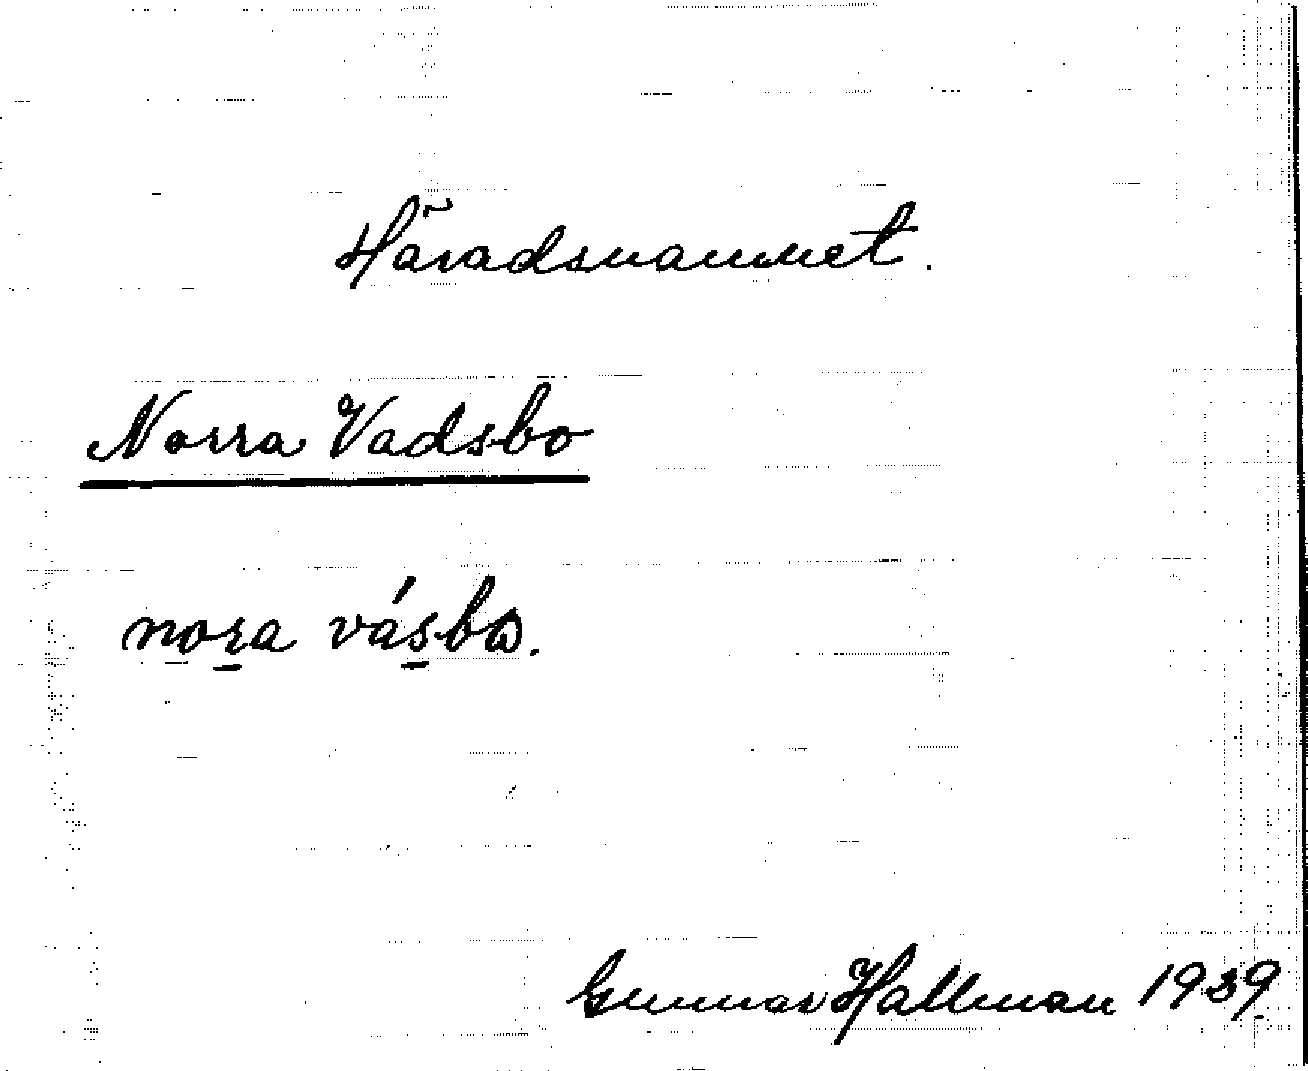 Häradsnamnet.
Norra Vadsbo
nor̲a vás̲bo.
Gunnar Hallman 1939.